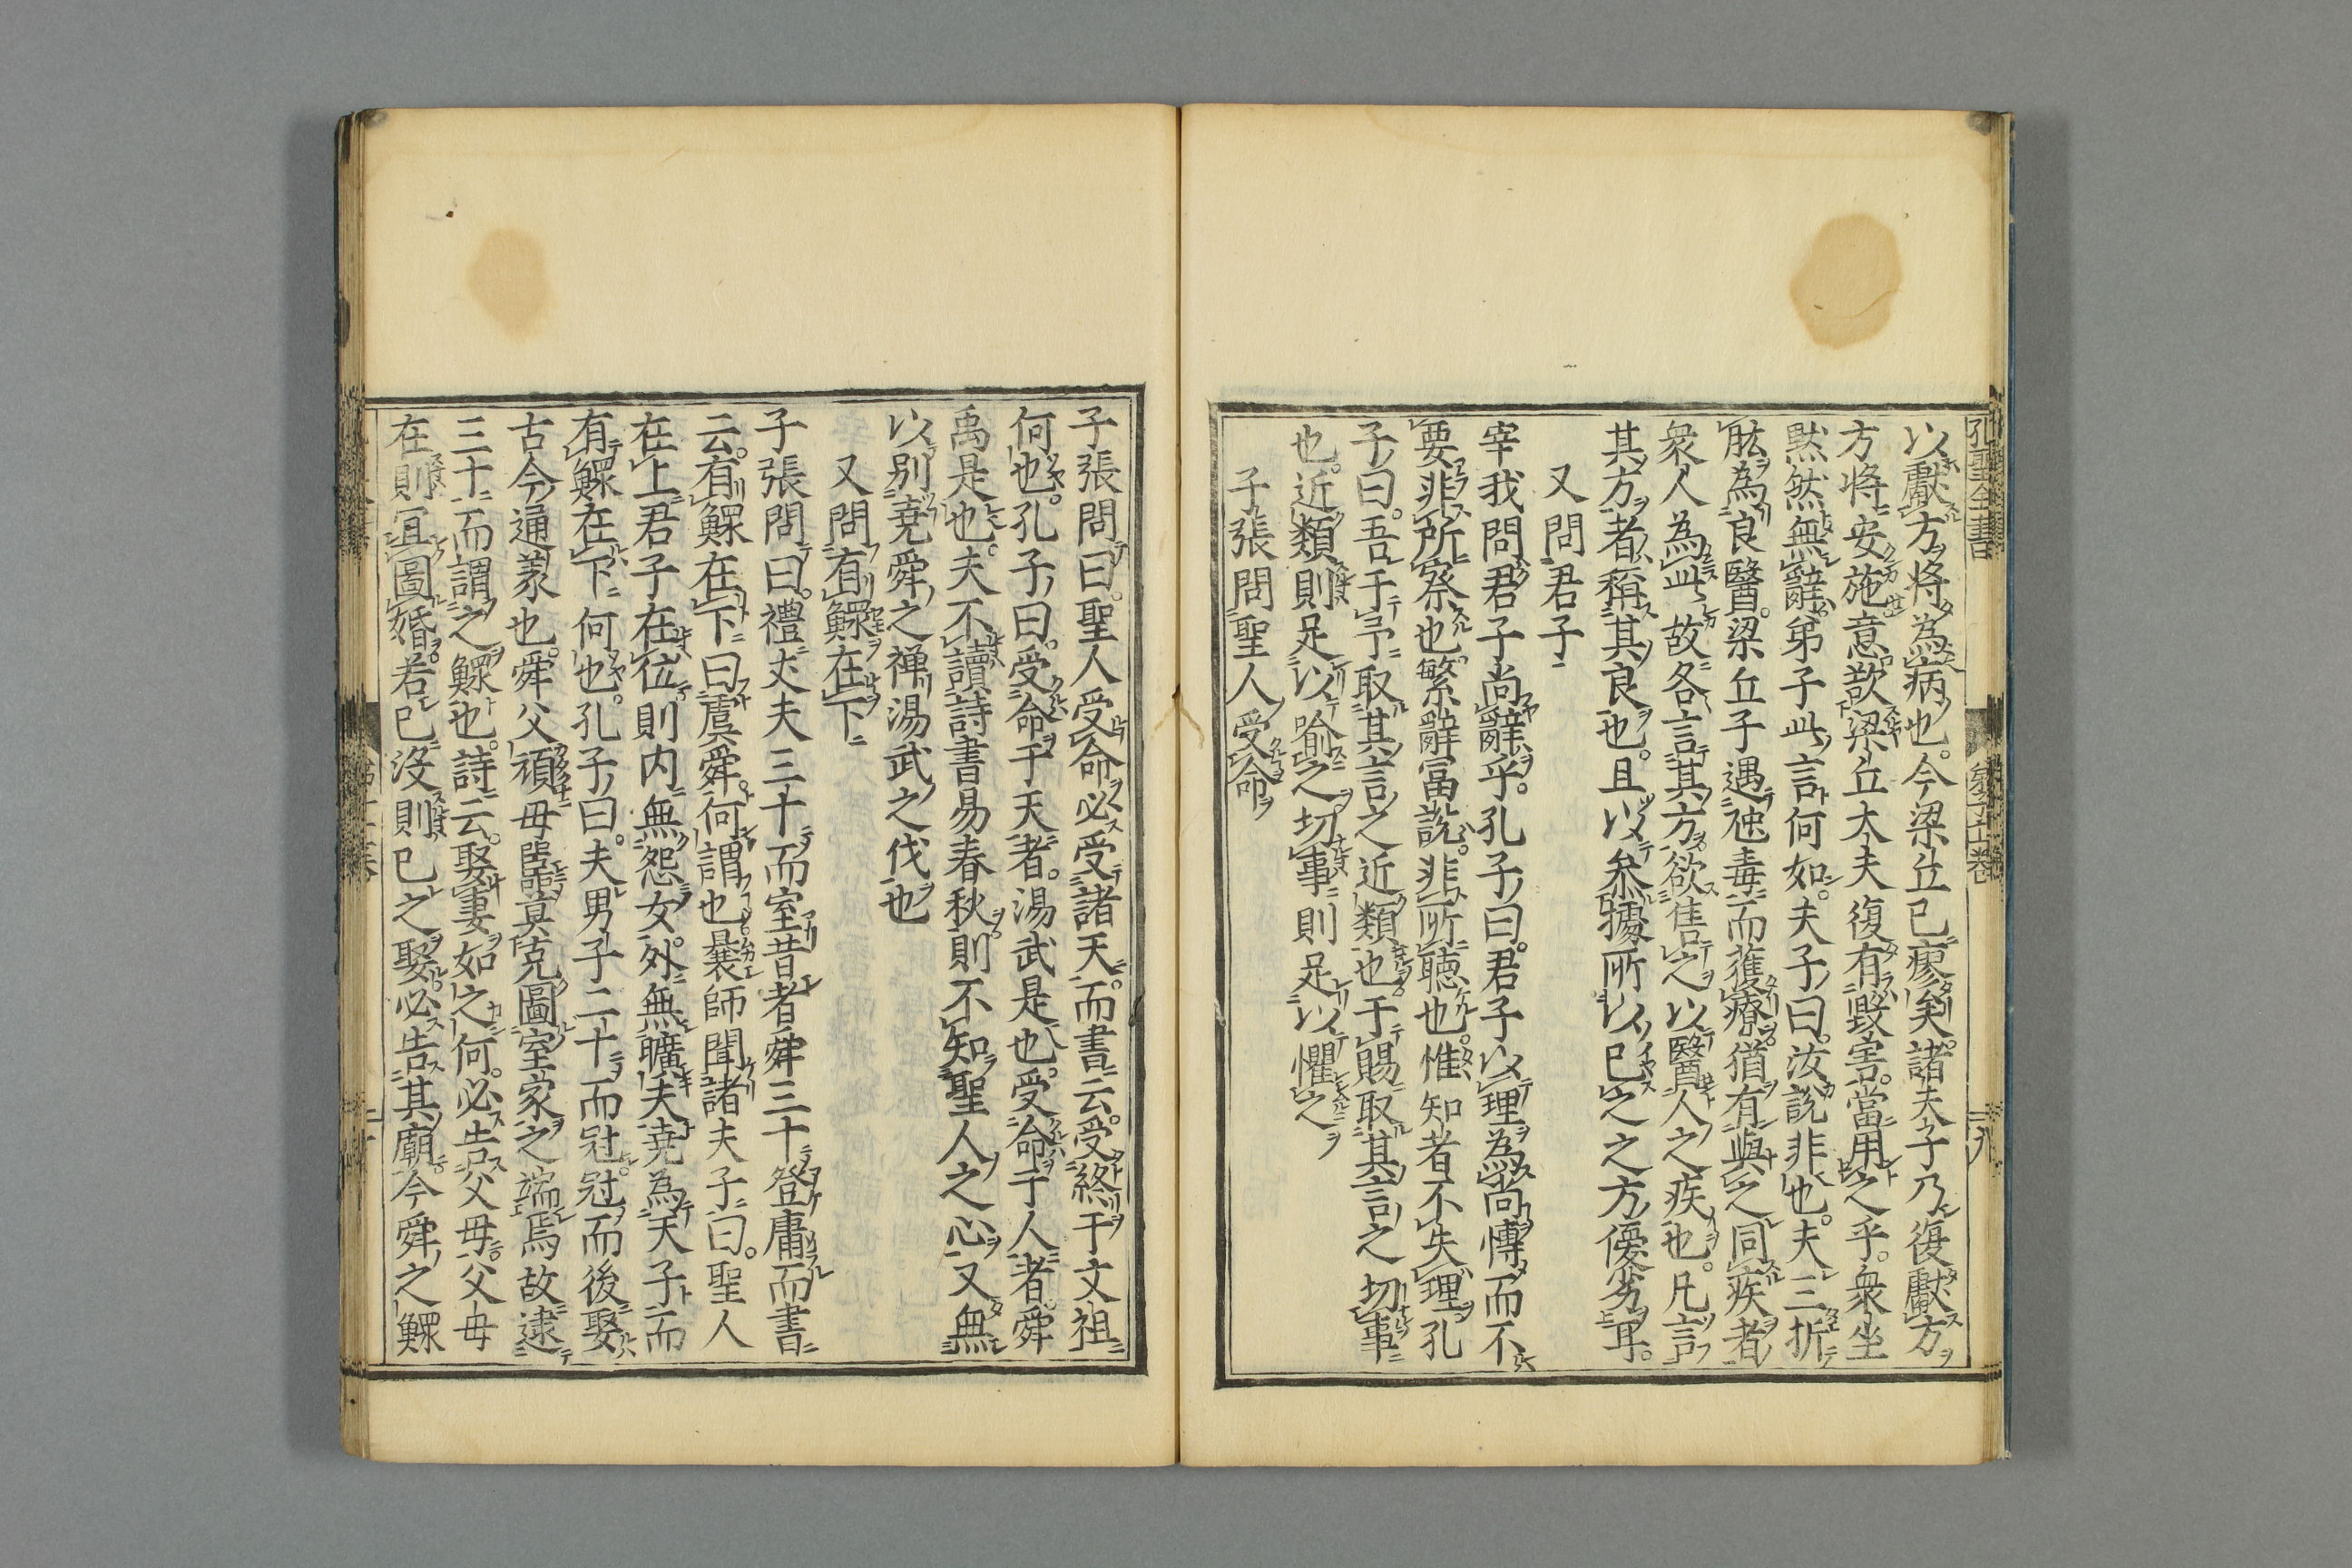 孔聖全書
以獻方將為病也。今梁丘已瘳矣。諸夫子乃復獻方
方將安施意。歆梁丘太夫復有毀害。當用之乎。衆坐
黙然無辭。弟子此言何如。夫子曰。汝說非也。夫三折
肱為良醫。梁丘子遇虺毒而獲療。猶有與之同疾者
衆人為此故各言其方欲售之以醫人之疾也。凡言
其方者稱其良也。且以叅據所以已之之方優劣耳。
又問君子
宰我問君子尚辭乎。孔子曰。君子以理為尚。博而不
要非所察也。繁辭富說。非所聽也。惟知者不失理。孔
子曰。吾于予取其言之近類也。于賜取其言之切事
也。近類則足以喻之。切事則足以懼之
子張問聖人受命
子張問曰。聖人受命必受諸天。而書云。受終于文祖
何也。孔子曰。受命于天者。湯武是也。受命于人者舜
禹是也。夫不讀詩書易春秋。則不知聖人之心。又無
以別堯舜之禪湯武之伐也
又問有鰥在下
子張問曰。禮丈夫三十而室。昔者舜三十登庸而書
云。有鰥在下曰虞舜。何謂也。曩師聞諸夫子曰。聖人
在上君子在位。則内無怨女。外無曠夫。堯為天子而
有鰥在下何也。孔子曰。夫男子二十而冠。冠而後娶
古今通義也。舜父頑母嚚莫克圖室家之端焉。故逮
三十而謂之鰥也。詩云。娶妻如之何。必告父母。父母
在則宜圖婚。若已沒則已之娶。必告其廟。今舜之鰥